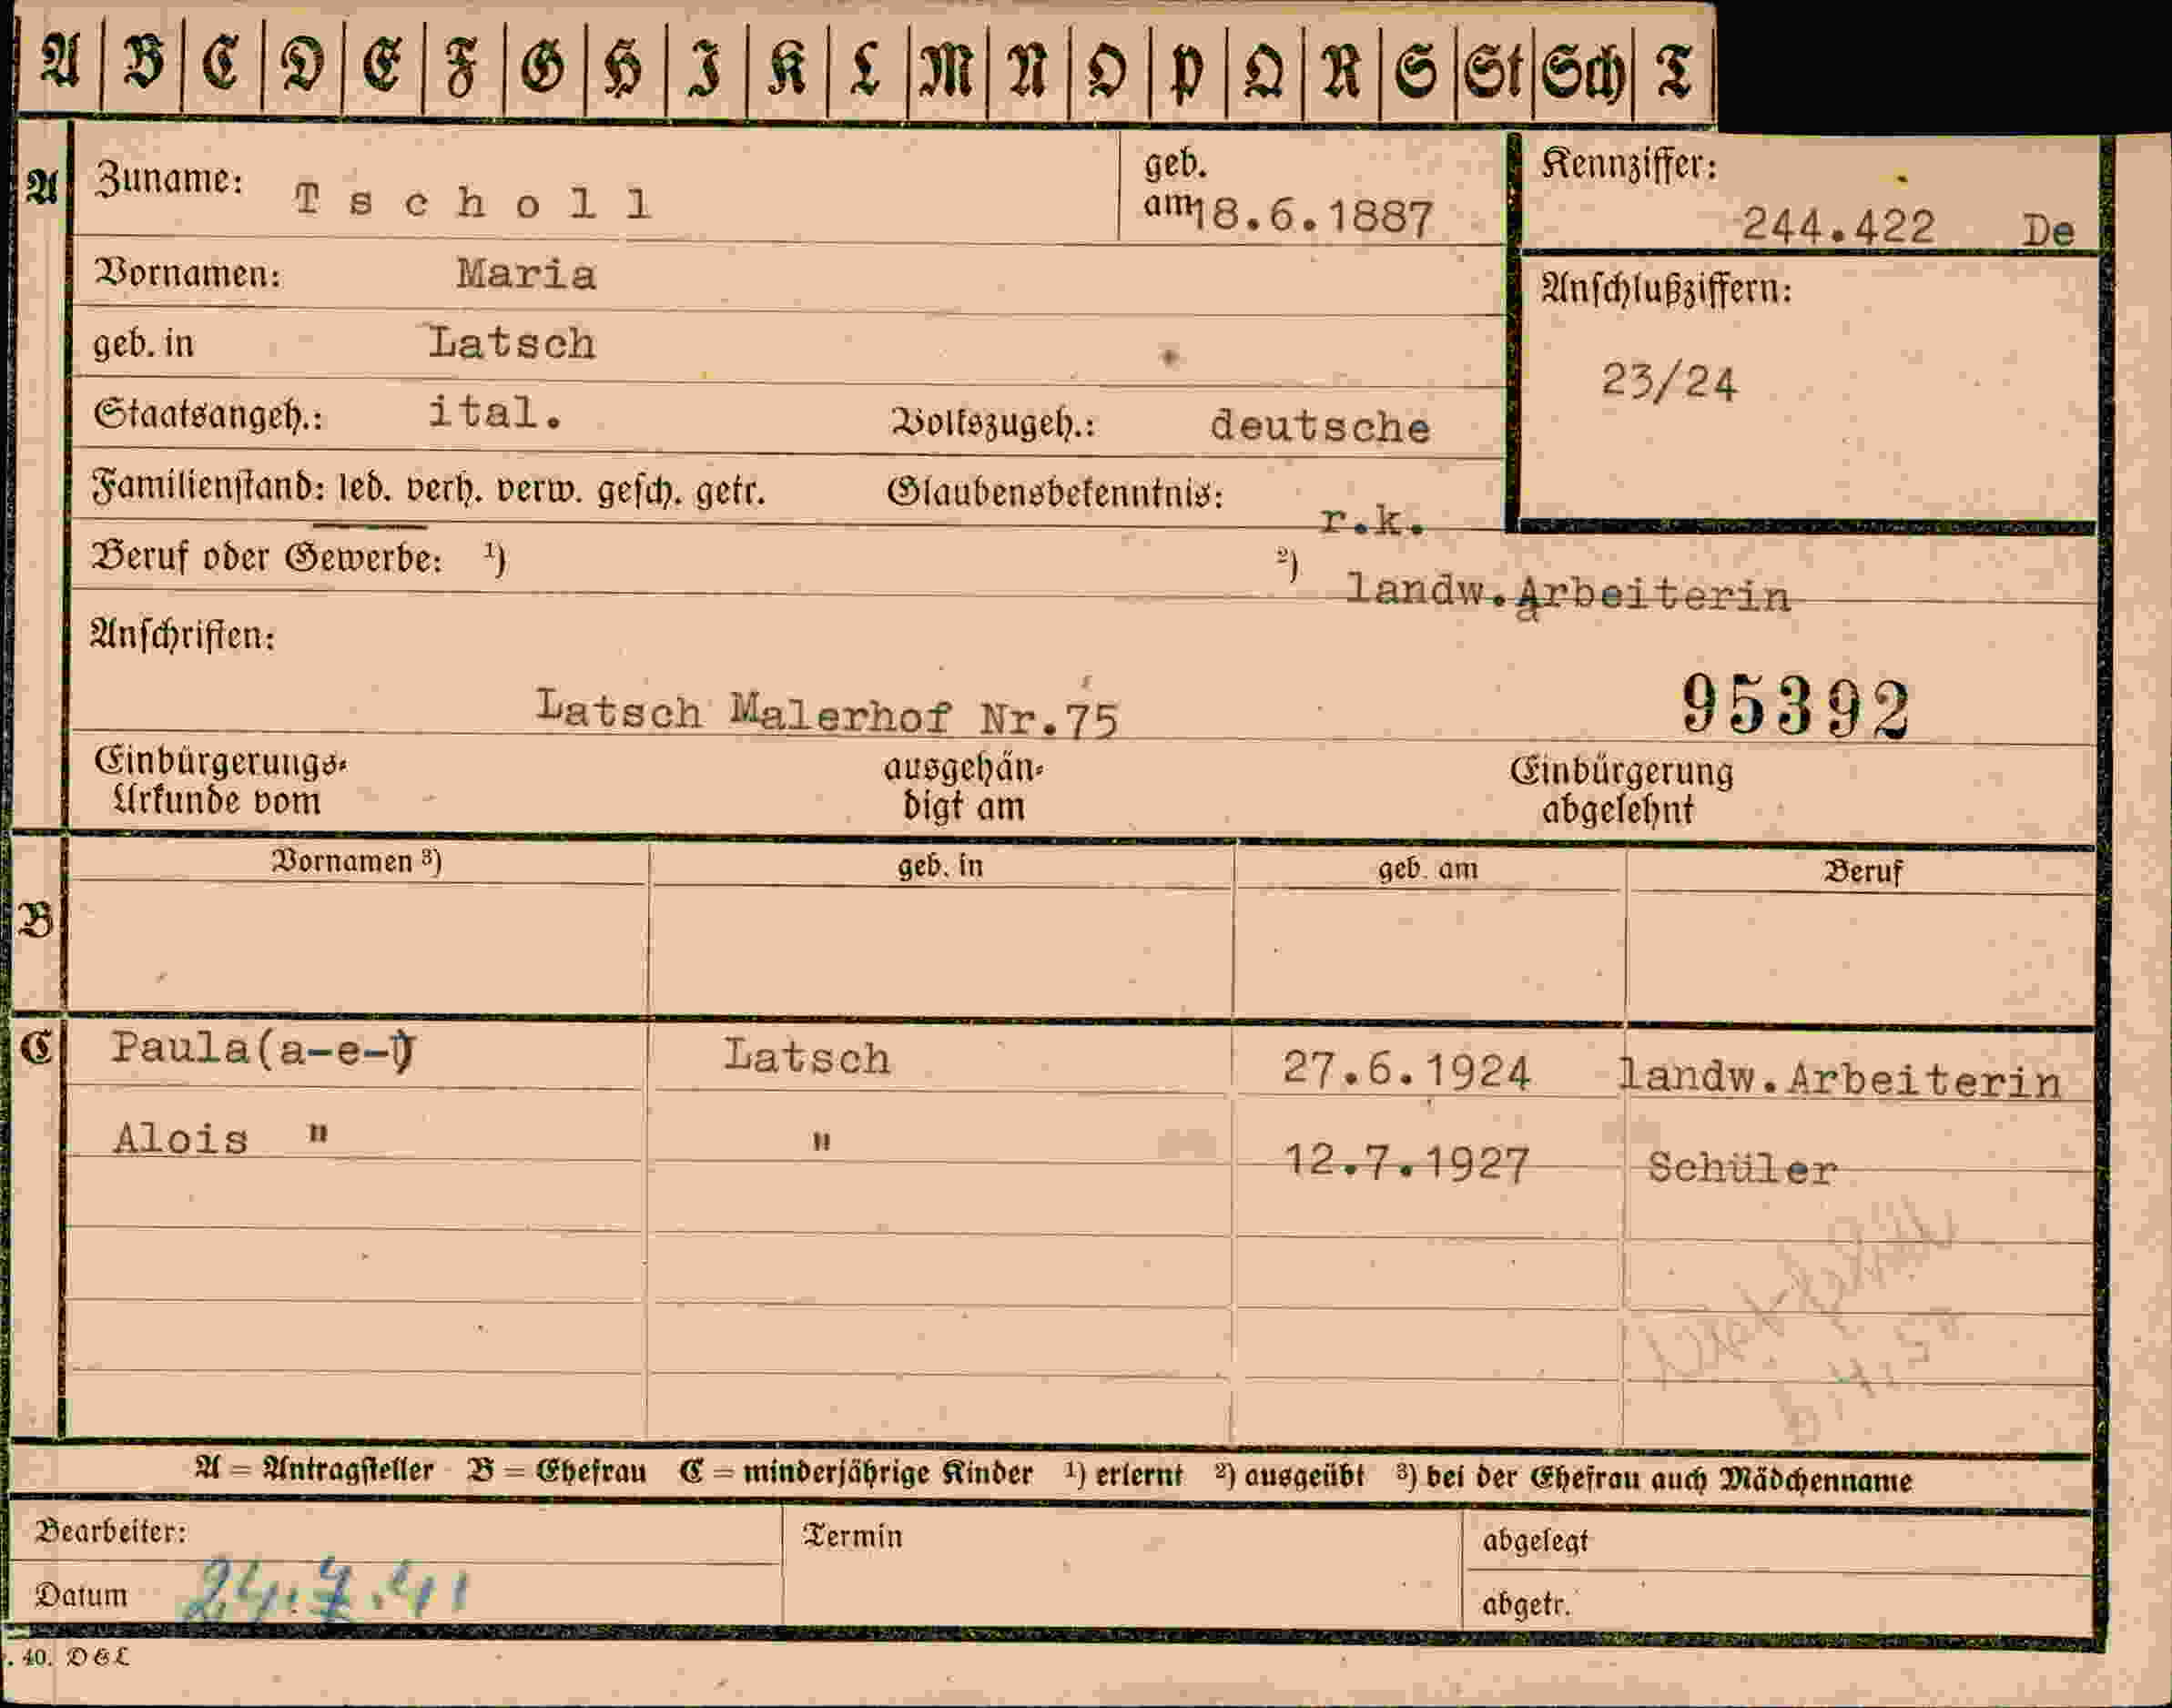 A B C D E F G H I K L M N O P Q R S St Sch T
A
Zuname: Tscholl
geb. am 18.6.1887
Kennziffer: 244.422 De
Vornamen: Maria
Anschlußziffern:
23/24
geb. in Latsch
Staatsangeh.: ital. Volkszugeh.: deutsche
Familienstand: led. verh. verw. gesch. getr. Glaubensbekenntnis: r.k.
Beruf oder Gewerbe: ¹) ²) landw.Arbeiterin
Anschriften:
Latsch Malerhof Nr.75
95392
Einbürgerungs- ausgehän- Einbürgerung
Urkunde vom digt am abgelehnt
Vornamen ³) geb. in geb. am Beruf
B
C Paula(a-e-i) Latsch 27.6.1924 landw.Arbeiterin
Alois " " 12.7.1927 Schüler
A = Antragsteller B = Ehefrau C = minderjährige Kinder ¹) erlernt ²) ausgeübt ³) bei der Ehefrau auch Mädchenname
Bearbeiter: Termin abgelegt
Datum 24.7.41 abgetr.
. 40. D & L